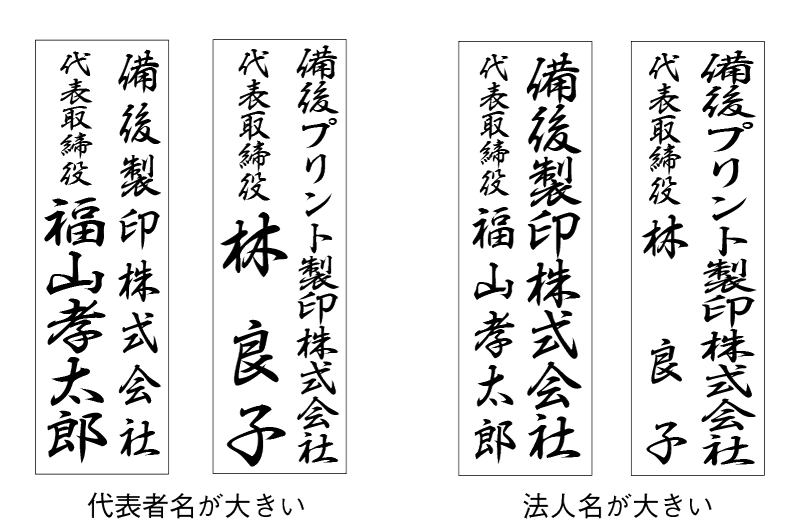 備後製印株式会社
代表取締役 福山孝太郎
備後プリント製印株式会社
代表取締役 林 良子
代表者名が大きい
備後製印株式会社
代表取締役 福山孝太郎
備後プリント製印株式会社
代表取締役 林 良子
法人名が大きい